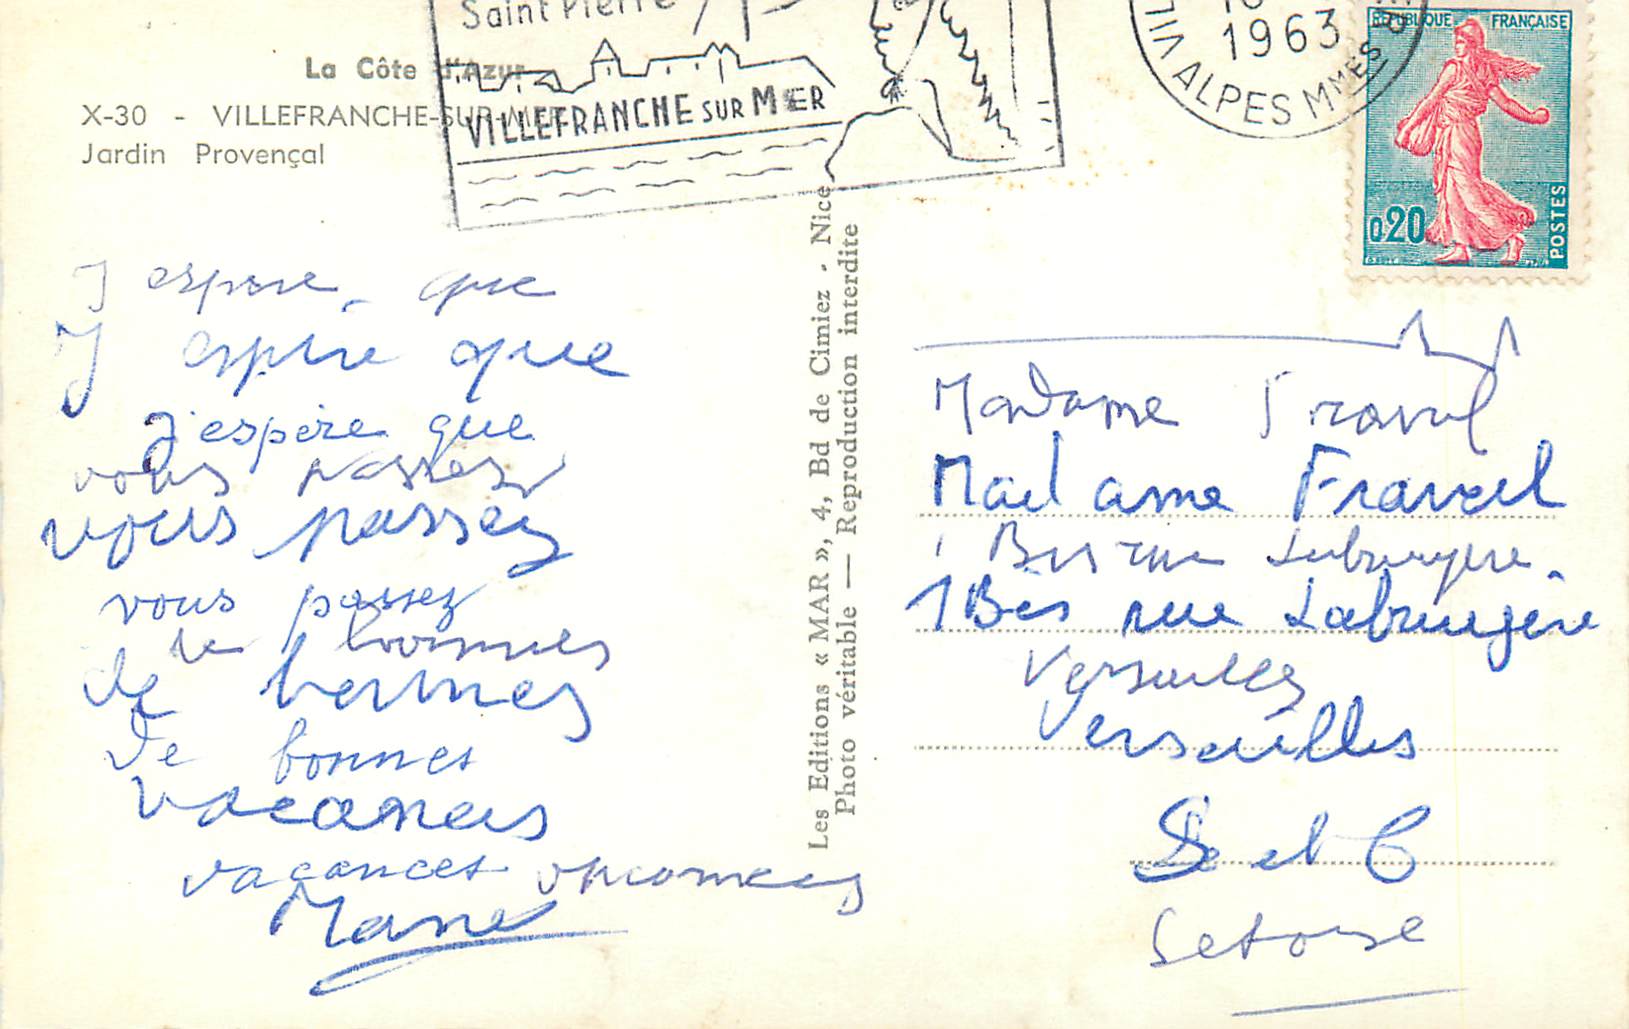 La Côte d'Azur
X-30 - VILLEFRANCHE-SUR-MER
Jardin Provençal
Saint Pierre
VILLEFRANCHE SUR MER
1963
ALPES MMES
REPUBLIQUE FRANÇAISE
0,20
POSTES
J espere que
J espère que
J'espère que
vous passez
vous passez
vous passez
de bonnes
de bonnes
de bonnes
vacances
vacances vacances
Les Editions « MAR », 4, Bd de Cimiez - Nice
Photo véritable — Reproduction interdite
Madame
Madame
1 Bis rue Labruyere
1 Bis rue Labruyère
Versailles
Versailles
S et O
Set oise